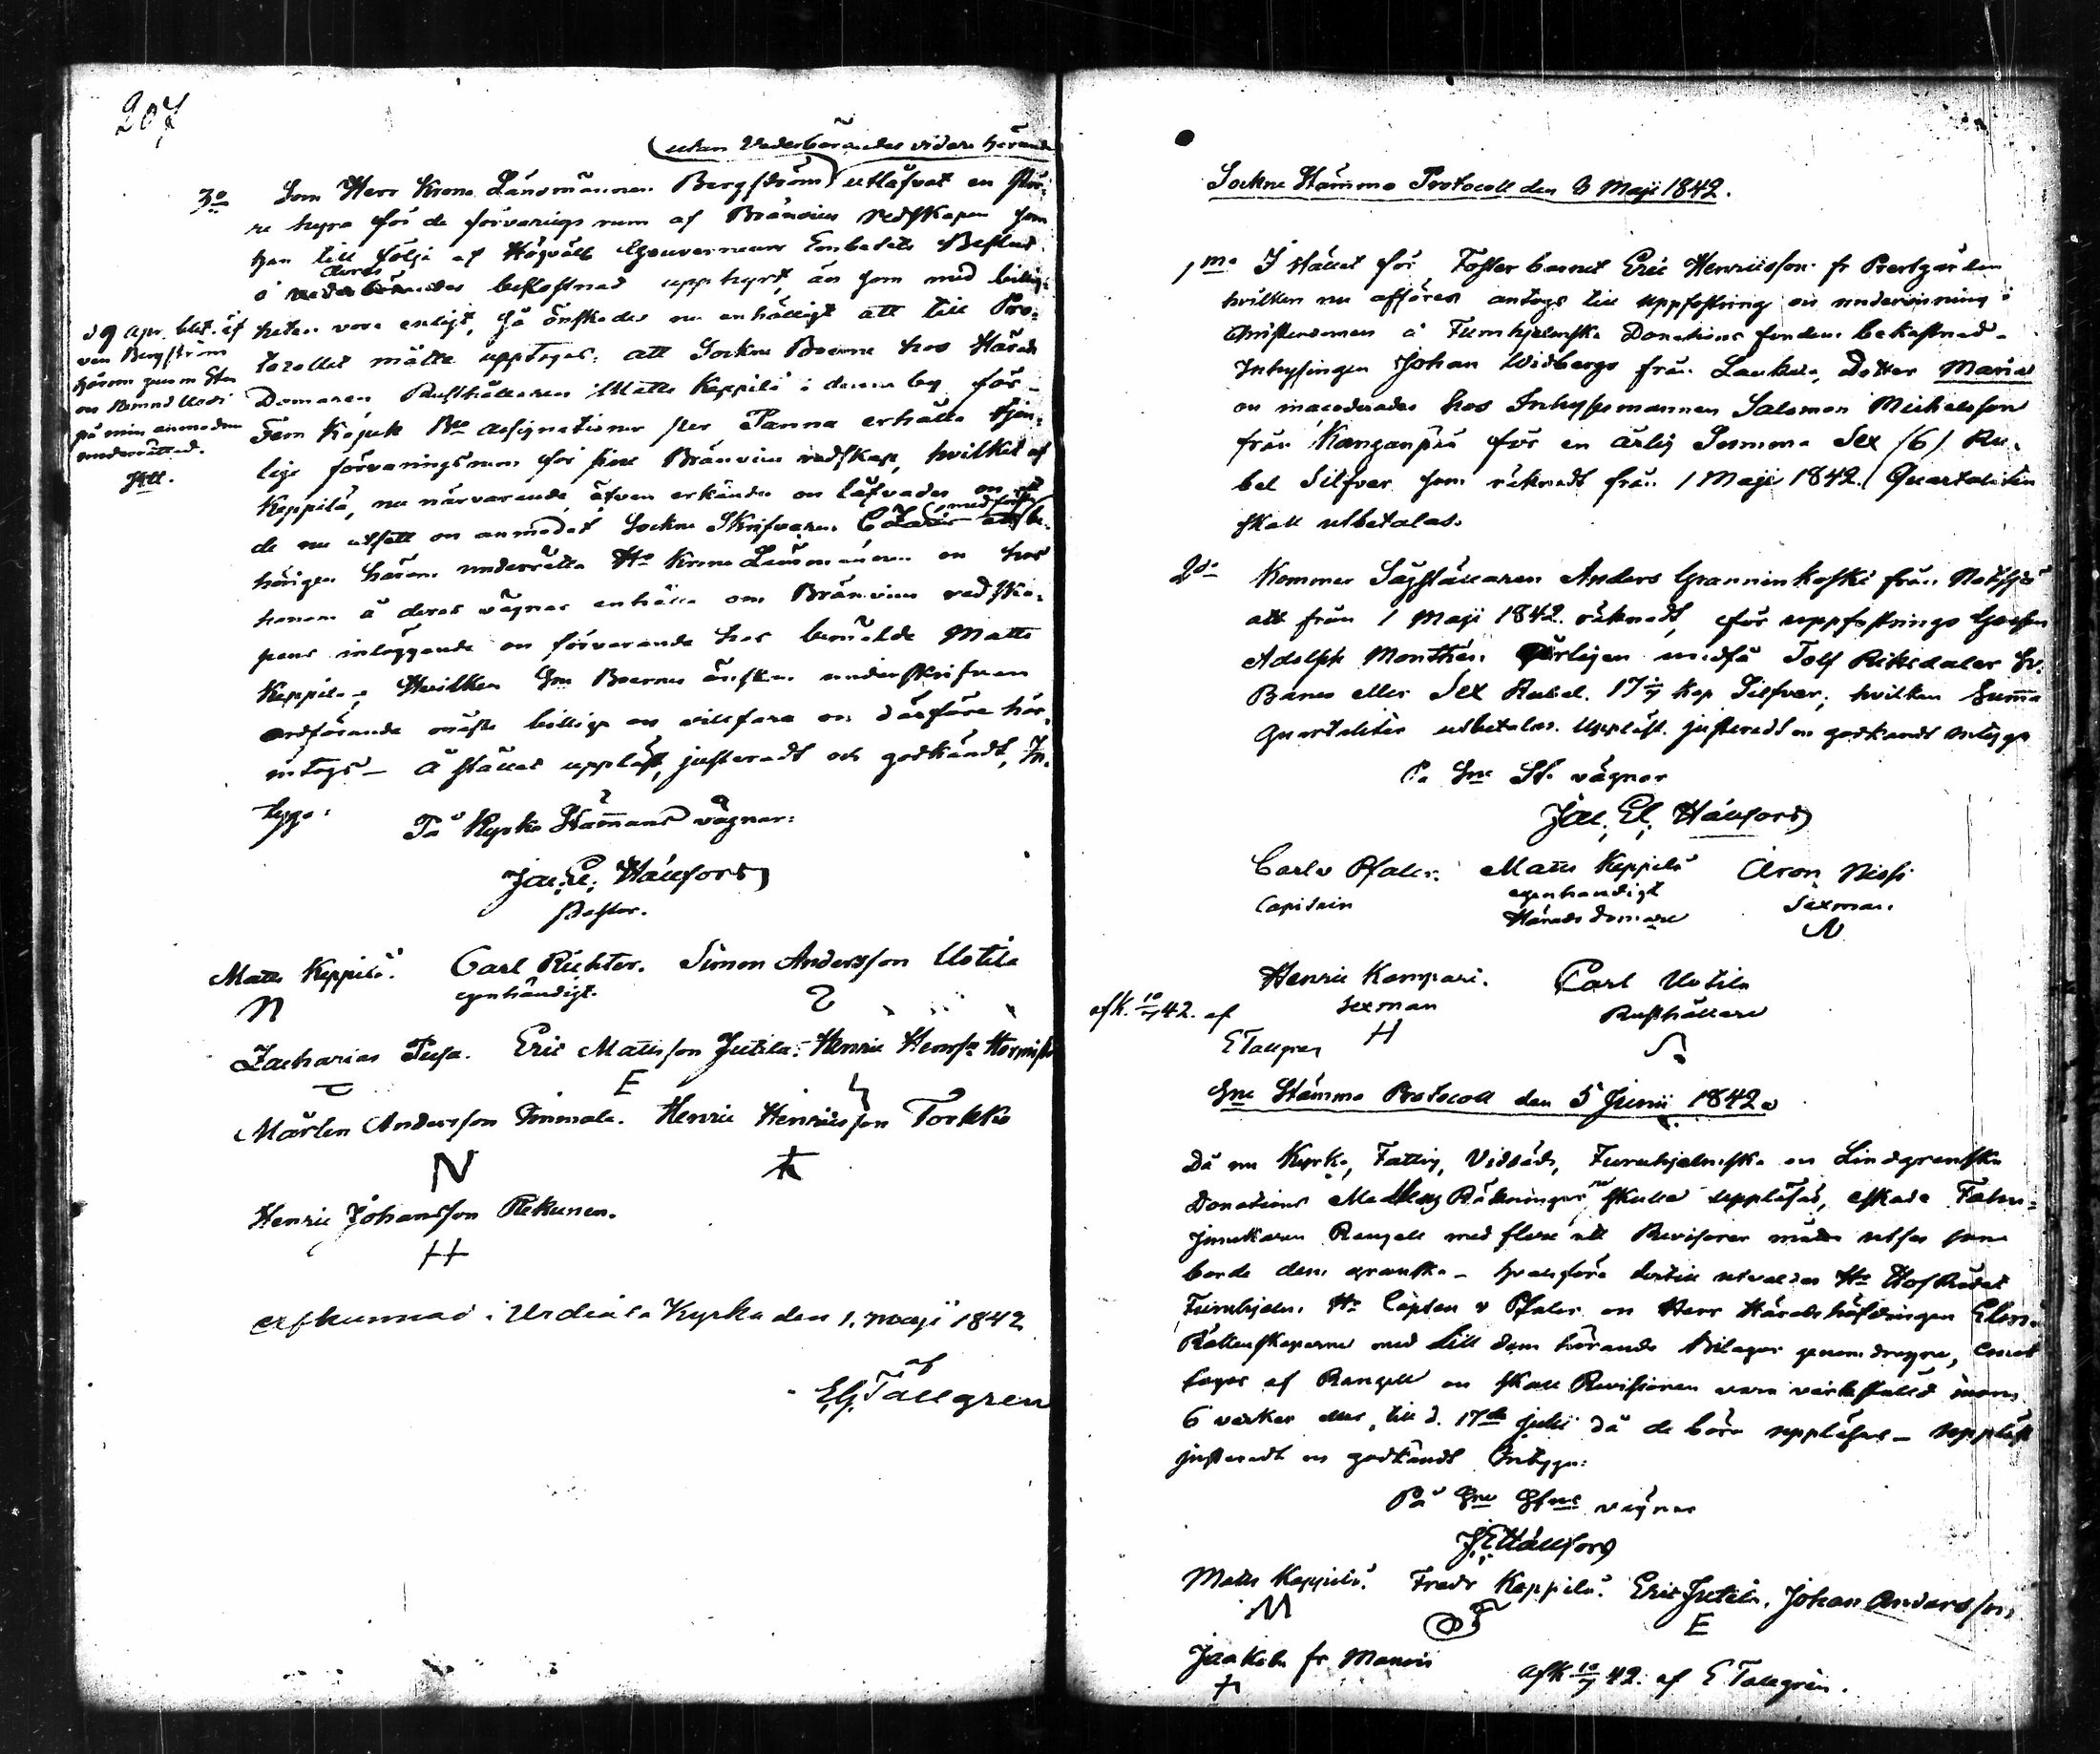 207
(utan Vederbörandes vidare hörande
3o Som Herr Krono Länsmannen Bergström utläfvat en stör-
re hyra för de förvarings rum af Bränvins redskapen som
han till följe af Högvälb Gouverneurs Embetets Beslut
deras
å vederbörandes bekostnad upphyrt, än som med billig-
heten vore enligt, så önskades nu enhälligt att till Pro-
tocollet måtte upptagas: att Sockne Boerne hos Härads
Domaren Rusthållaren Matts Keppilä i denna by för
Fem Kopek Bco Assignationer per Panna erhålla tjen-
lige förvaringsrum för sine Bränvins redskap, hvilket af
Keppilä, nu närvarande, äfven erkändes och låfvades
de nu utsatt och anmodat Sockne Skrifvaren
hörigen härom underrätta Hr Krono Länsmannen och hos
honom å deras vägnar anhålla om Bränvins redska-
pens inläggande och förvarande hos bemälde Matts
Keppilä, Hvilken Sne Boernes önskan underskrifven
ordförande måste billiga och villfara och därföre här
intogs – å stället uppläst, justeradt och godkändt, In-
tyga:
d 9 Apr. blef
van Bergström
härom genom
på min anmodan
underrättad.
Hll.
På Kyrko Stämmans vägnar:
Jac. El. Hällfors
Pastor.
Matts Keppilä. Carl Richter. Simon Andersson Uotila
egenhändigt.
Zacharias Pusa. Eric Matsson Jutila. Henric Henrss
E
Mårten Andersson Finmala. Henric Henricsson Torkko
N
Henric Johansson Rekunen.
H
Afkunnad i Urdiala Kyrka den 1. maji 1842
af
E.G. Tallgren
Sockne Stämmo Protocoll den 3 Maji 1842.
1mo I stället för Foster barnet Eric Henricsson fr Prestgården
hvilken nu afföres antogs till uppfostring och undervisning i
Christendomen å Furuhjelmska Donations fondens bekostnad
Inhysingen Johan Widbergs från Laukela, Dotter Maria
och inaccorderades hos Inhysesmannen Salomon Michelsson
från Kanganpää för en årlig Summa Sex (6) Ru-
bel Silfver som räknadt från 1 Maji 1842. Quartaliter
skall utbetalas.
2do Kommer Sågställaren Anders Granninkoski från
att från 1 Maji 1842 räknadt, för uppfostrings Gossen
Adolph Monthén årligen undfå Tolf Riksdaler Sv.
Banco eller Sex Rubel 17 1/7 Kop Silfver, hvilken Summa
Quartaliter utbetalas. Uppläst justeradt och godkändt Intyga
På Sne St. vägnar
Jac. El. Hällfors
Carl v Pfaler. Matts Keppilä Aron Nissi
Capitain egenhändigt Sexman.
Härads domare N
Henric Kampari. Carl Uotila
Sexman Rusthållare
H
afk. 10/7 42. af
E Tallgren
Sne Stämmo Protocoll den 5 Junii 1842.
Då nu Kyrko, Fattig, Vidsäds, Furuhjelmska och Lindgrenska
Donations Medlens Räkningar skulle uppläsas, äskade Fahn-
junkaren Rangell med flere att Revisorer måtte utses som
borde dem granska – hvarföre dertill utvaldes Hr HofRådet
Furuhjelm, Hr Capten v Pfaler och Herr Häradshöfdingen
Räkenskaperne med till dem hörande Bilagor genomdrogne, emot
togos af Rangell och skall Revisionen vara verkställd inom
6 veckor eller till d. 17de Julii då de böra uppläsas – Uppläst
justeradt och godkändt Intyga:
På Sne Stns vägnar
J.E. Hällfors
Matts Keppilä. Fredr Keppilä. Eric Jutila. Johan Andersson
M F E
Jaakola fr Mamis
afk 10/7 42. af E Tallgrén.